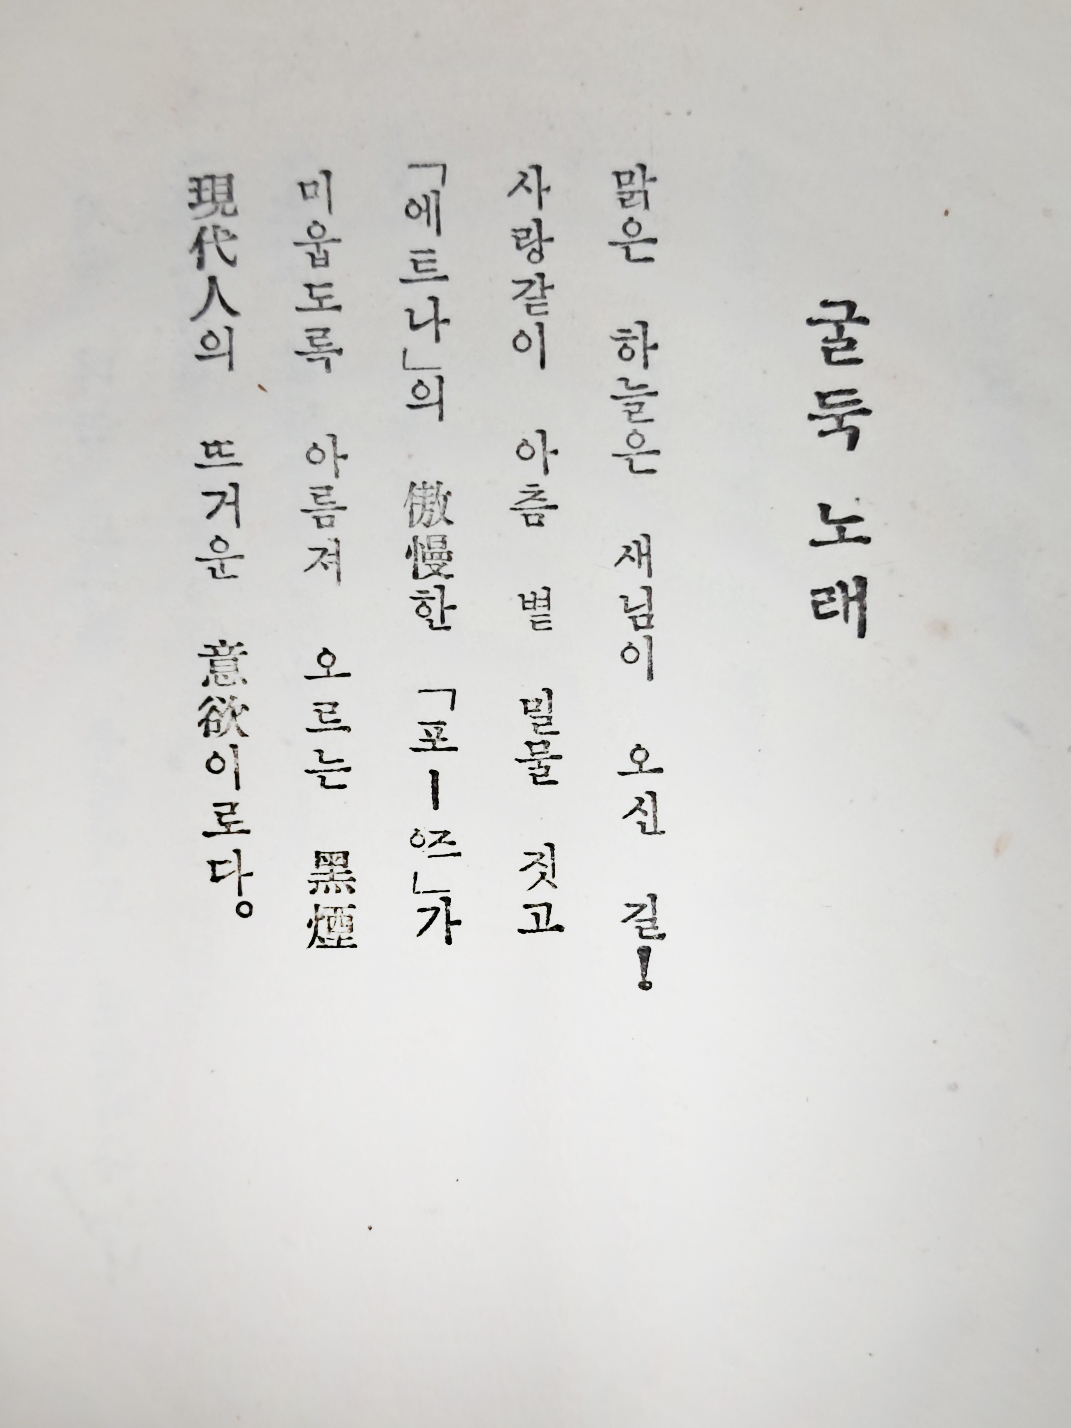 굴뚝 노래
맑은 하늘은 새님이 오신 길!
사랑같이 아츰 볕 밀물 짓고
「에트나」의 傲慢한 「포―즈」가
미웁도록 아름져 오르는 黑煙
現代人의 뜨거운 意欲이로다。